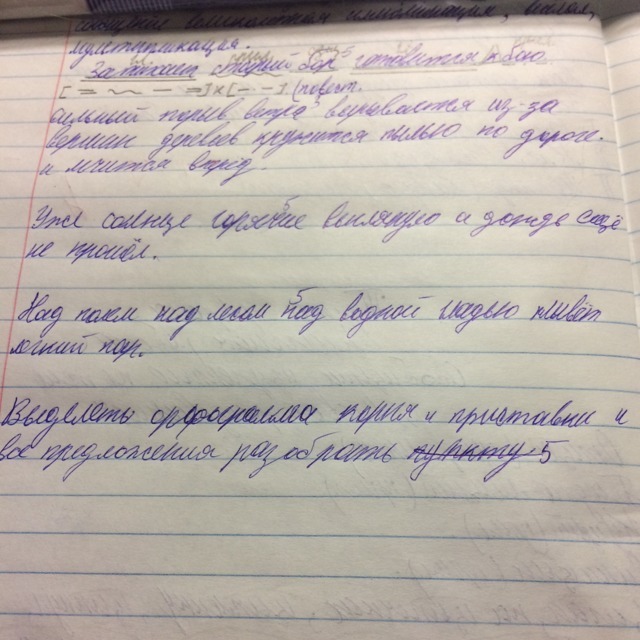 мультипликация.
Затихает старый бор готовится к бою
[= ~ — =]х[- - -] (повест.
сильный порыв ветра вырывается из-за
вершин деревьев кружится пылью по дороге.
и мчится
Уже солнце горячее и дождь ещё
не прошёл.
Над полем над лесом над водной гладью плывёт
лёгкий пар.
Выделеть орфограмма корня и приставки и
все предложения разобрать 5